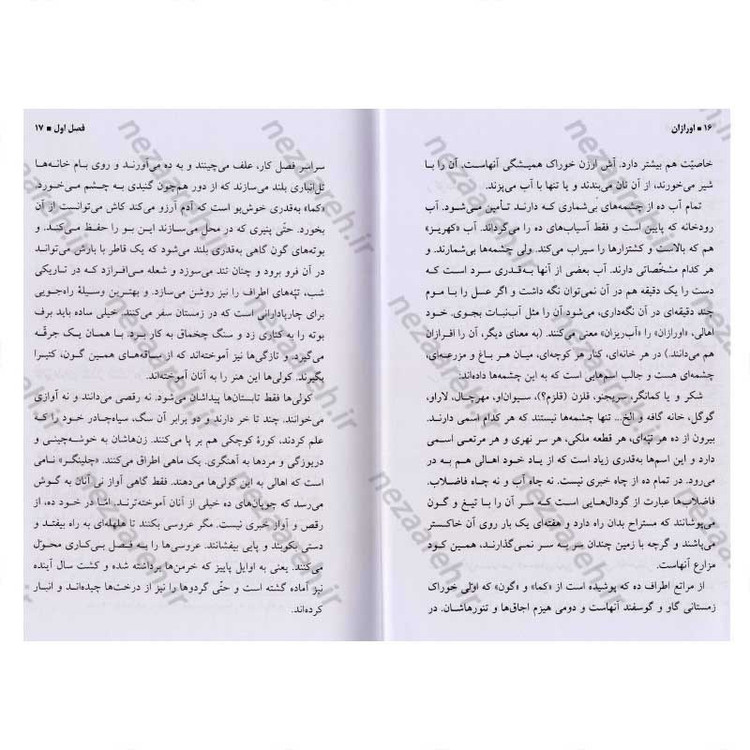 ۱۶ ■ اورازان
خاصیّت هم بیشتر دارد. آش ارزن خوراک همیشگی آنهاست. آن را با
شیر می‌خورند، از آن نان می‌بندند و یا تنها با آب می‌پزند.
تمام آب ده از چشمه‌های بی‌شماری که دارند تأمین می‌شود. آب
رودخانه که پایین است و فقط آسیاب‌های ده را می‌گرداند. آب «کهریز»
هم که بالاست و کشتزارها را سیراب می‌کند. ولی چشمه‌ها بی‌شمارند. و
هر کدام مشخّصاتی دارند. آب بعضی از آنها به‌قدری سرد است کـه
دست را یک دقیقه هم در آن نمی‌توان نگه داشت و اگر عسل را با موم
چند دقیقه‌ای در آن نگه‌داری، می‌شود آن را مثل آب‌نبات بجوی. خود
اهالی، «اورازان» را «آب‌ریزان» معنی می‌کنند. (به معنای دیگر، آن را افرازان
هم می‌دانند.) در هر خانه‌ای، کنار هر کوچه‌ای، میـان هـر بـاغ و مزرعـه‌ای،
چشمه‌ای هست و جالب اسم‌هایی است که به این چشمه‌ها داده‌اند:
شکر و یا کمانگر، سریجنو، قلزن (قلزم؟)، سیوان‌او، مهرچال، لاراو،
گوگل، خانه گافه و الخ... تنها چشمه‌ها نیستند که هر کدام اسمی دارنـد.
بیرون از ده هر تپّه‌ای، هر قطعه ملکی، هر سر نهری و هر مرتعـی اسـمی
دارد و این اسم‌ها به‌قدری زیاد است که از یـاد خـود اهـالی هـم بـه در
می‌رود. در تمام ده از چاه خبری نیست. نه چاه آب و نـه چـاه فاضـلاب.
فاضلاب‌ها عبارت از گودال‌هایی است کـه سـر آن را بـا تیـغ و گـون
می‌پوشانند که مستراح بدان راه دارد و هفته‌ای یک بار روی آن خاکستر
می‌پاشند و گرچه با زمین چندان سر به سر نمی‌گذارنـد، همـین کـود
مزارع آنهاست.
از مراتع اطراف ده که پوشیده است از «کما» و «گون» که اوّلی خوراک
زمستانی گاو و گوسفند آنهاست و دومی هیزم اجاق‌ها و تنورهاشان. در
فصل اول ■ ۱۷
سراسر فصل کار، علف می‌چینند و به ده می‌آورنـد و روی بـام خانـه‌هـا
تل‌انباری بلند می‌سازند که از دور هم‌چون گنبدی به چـشم مـی‌خـورد.
«کما» به‌قدری خوش‌بو است که آدم آرزو می‌کند کاش می‌توانست از آن
بخورد. حتّی پنیری که در محل می‌سازند این بـو را حفـظ مـی‌کنـد. و
بوته‌های گون گاهی به‌قدری بلند می‌شود که یک قاطر با بارش می‌توانـد
در آن فرو برود و چنان تند می‌سوزد و شعله می‌افـرازد کـه در تـاریکی
شب، تپّه‌های اطراف را نیز روشن می‌سازد. و بهترین وسیلهٔ راه‌جویی
برای چارپادارانی است که در زمستان سفر می‌کنند. خیلی ساده باید برف
بوته را به کناری زد و سنگ چخماق به کار بـرد. بـا همـان یـک جرقّـه
می‌گیرد. و تازگی‌ها نیز آموخته‌اند که از سـاقه‌هـای همـین گـون، کتیـرا
بگیرند. کولی‌ها این هنر را به آنان آموخته‌اند.
کولی‌ها فقط تابستان‌ها پیداشان می‌شود. نـه رقصی می‌دانند و نـه آوازی
می‌خوانند. چند تا خر دارند و دو برابر آن سگ. سیاه‌چـادر خـود را کـه
علم کردند، کورهٔ کوچکی هم بر پا می‌کنند. زن‌هاشان به خوشه‌چینـی و
دریوزگی و مردها به آهنگری. یک ماهی اطراق می‌کنند. «چلینگـر» نـامی
است که اهالی به این کولی‌ها می‌دهند. فقط گاهی آواز نی آنان به گـوش
می‌رسد که چوپان‌های ده خیلی از آنان آموخته‌ترنـد. امّـا در خـود ده، از
رقص و آواز خبری نیست. مگر عروسی بکنند تا هلهله‌ای به راه بیفتـد و
دستی بکوبند و پایی بیفشانند. عروسی‌ها را بـه فـصل بـی‌کـاری محـوّل
می‌کنند. یعنی به اوایل پاییز که خرمن‌ها برداشته شده و کشت سال آینده
نیز آماده گشته است و حتّی گردوها را نیز از درخت‌ها چیده‌انـد و انبـار
کرده‌اند.
nezaareh.ir